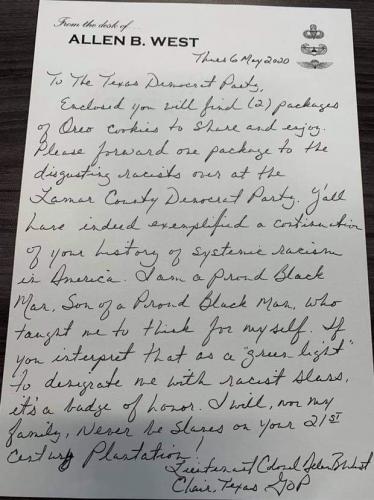 From the desk of...
ALLEN B. WEST
Thurs 6 May 2020
To The Texas Democrat Party,
Enclosed you will find (2) packages
of Oreo cookies to share and enjoy.
Please forward one package to the
disgusting racists over at the
Lamar County Democrat Party. Y'all
have indeed exemplified a continuation
of your history of systemic racism
in America. I am a Proud Black
Man, Son of a Proud Black Man, who
taught me to think for myself. If
you interpret that as a "green light"
to denigrate me with racist slurs,
it's a badge of honor. I will, nor my
family, Never be Slaves on your 21ST
Century Plantation!
Lieutenant Colonel Allen B West
Chair, Texas GOP